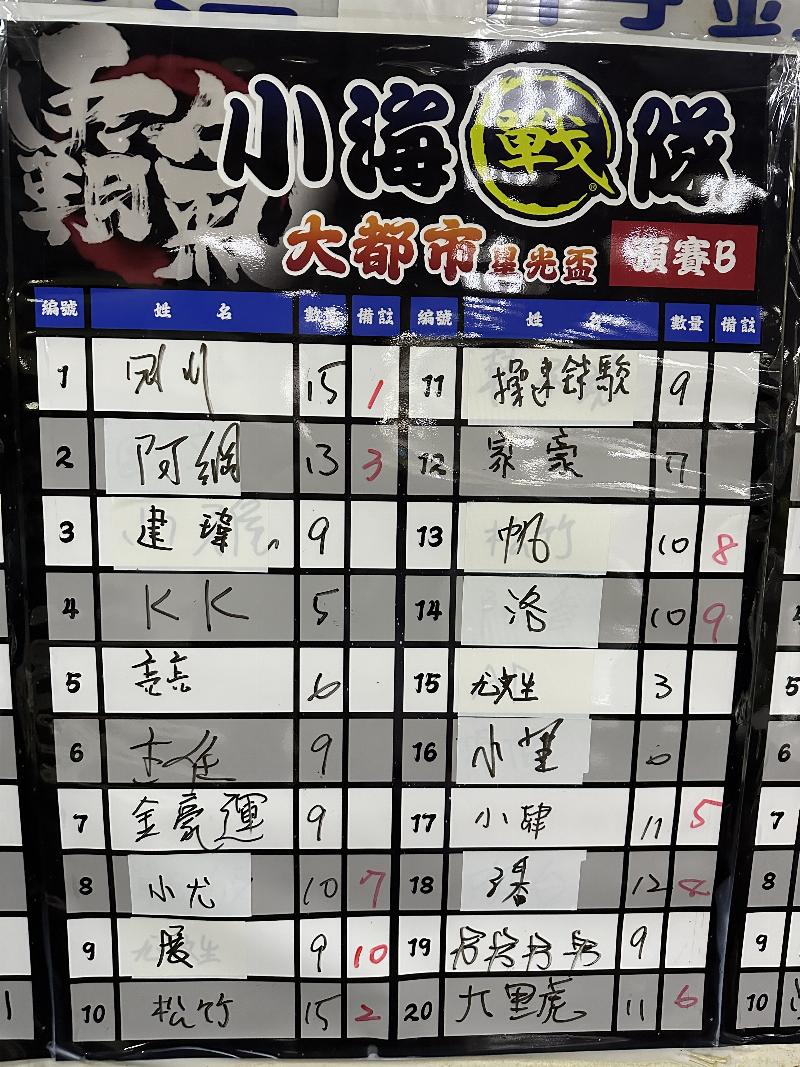 霸
小海戰隊
大都市 星光盃 預賽B
編號 姓名 數量 備註 編號 姓名 數量 備註
1 15 1 11 操速鋅駿 9
2 阿綱 13 3 12 家豪 7
3 建瑋 9 13 帆 10 8
4 KK 5 14 洛 10 9
5 6 15 尤先生 3
6 9 16 小筆 6
7 金豪運 9 17 小肆 11 5
8 小尤 10 7 18 12
9 展 9 10 19 9
10 松竹 15 2 20 大里虎 11 6
5
6
7
8
9
10